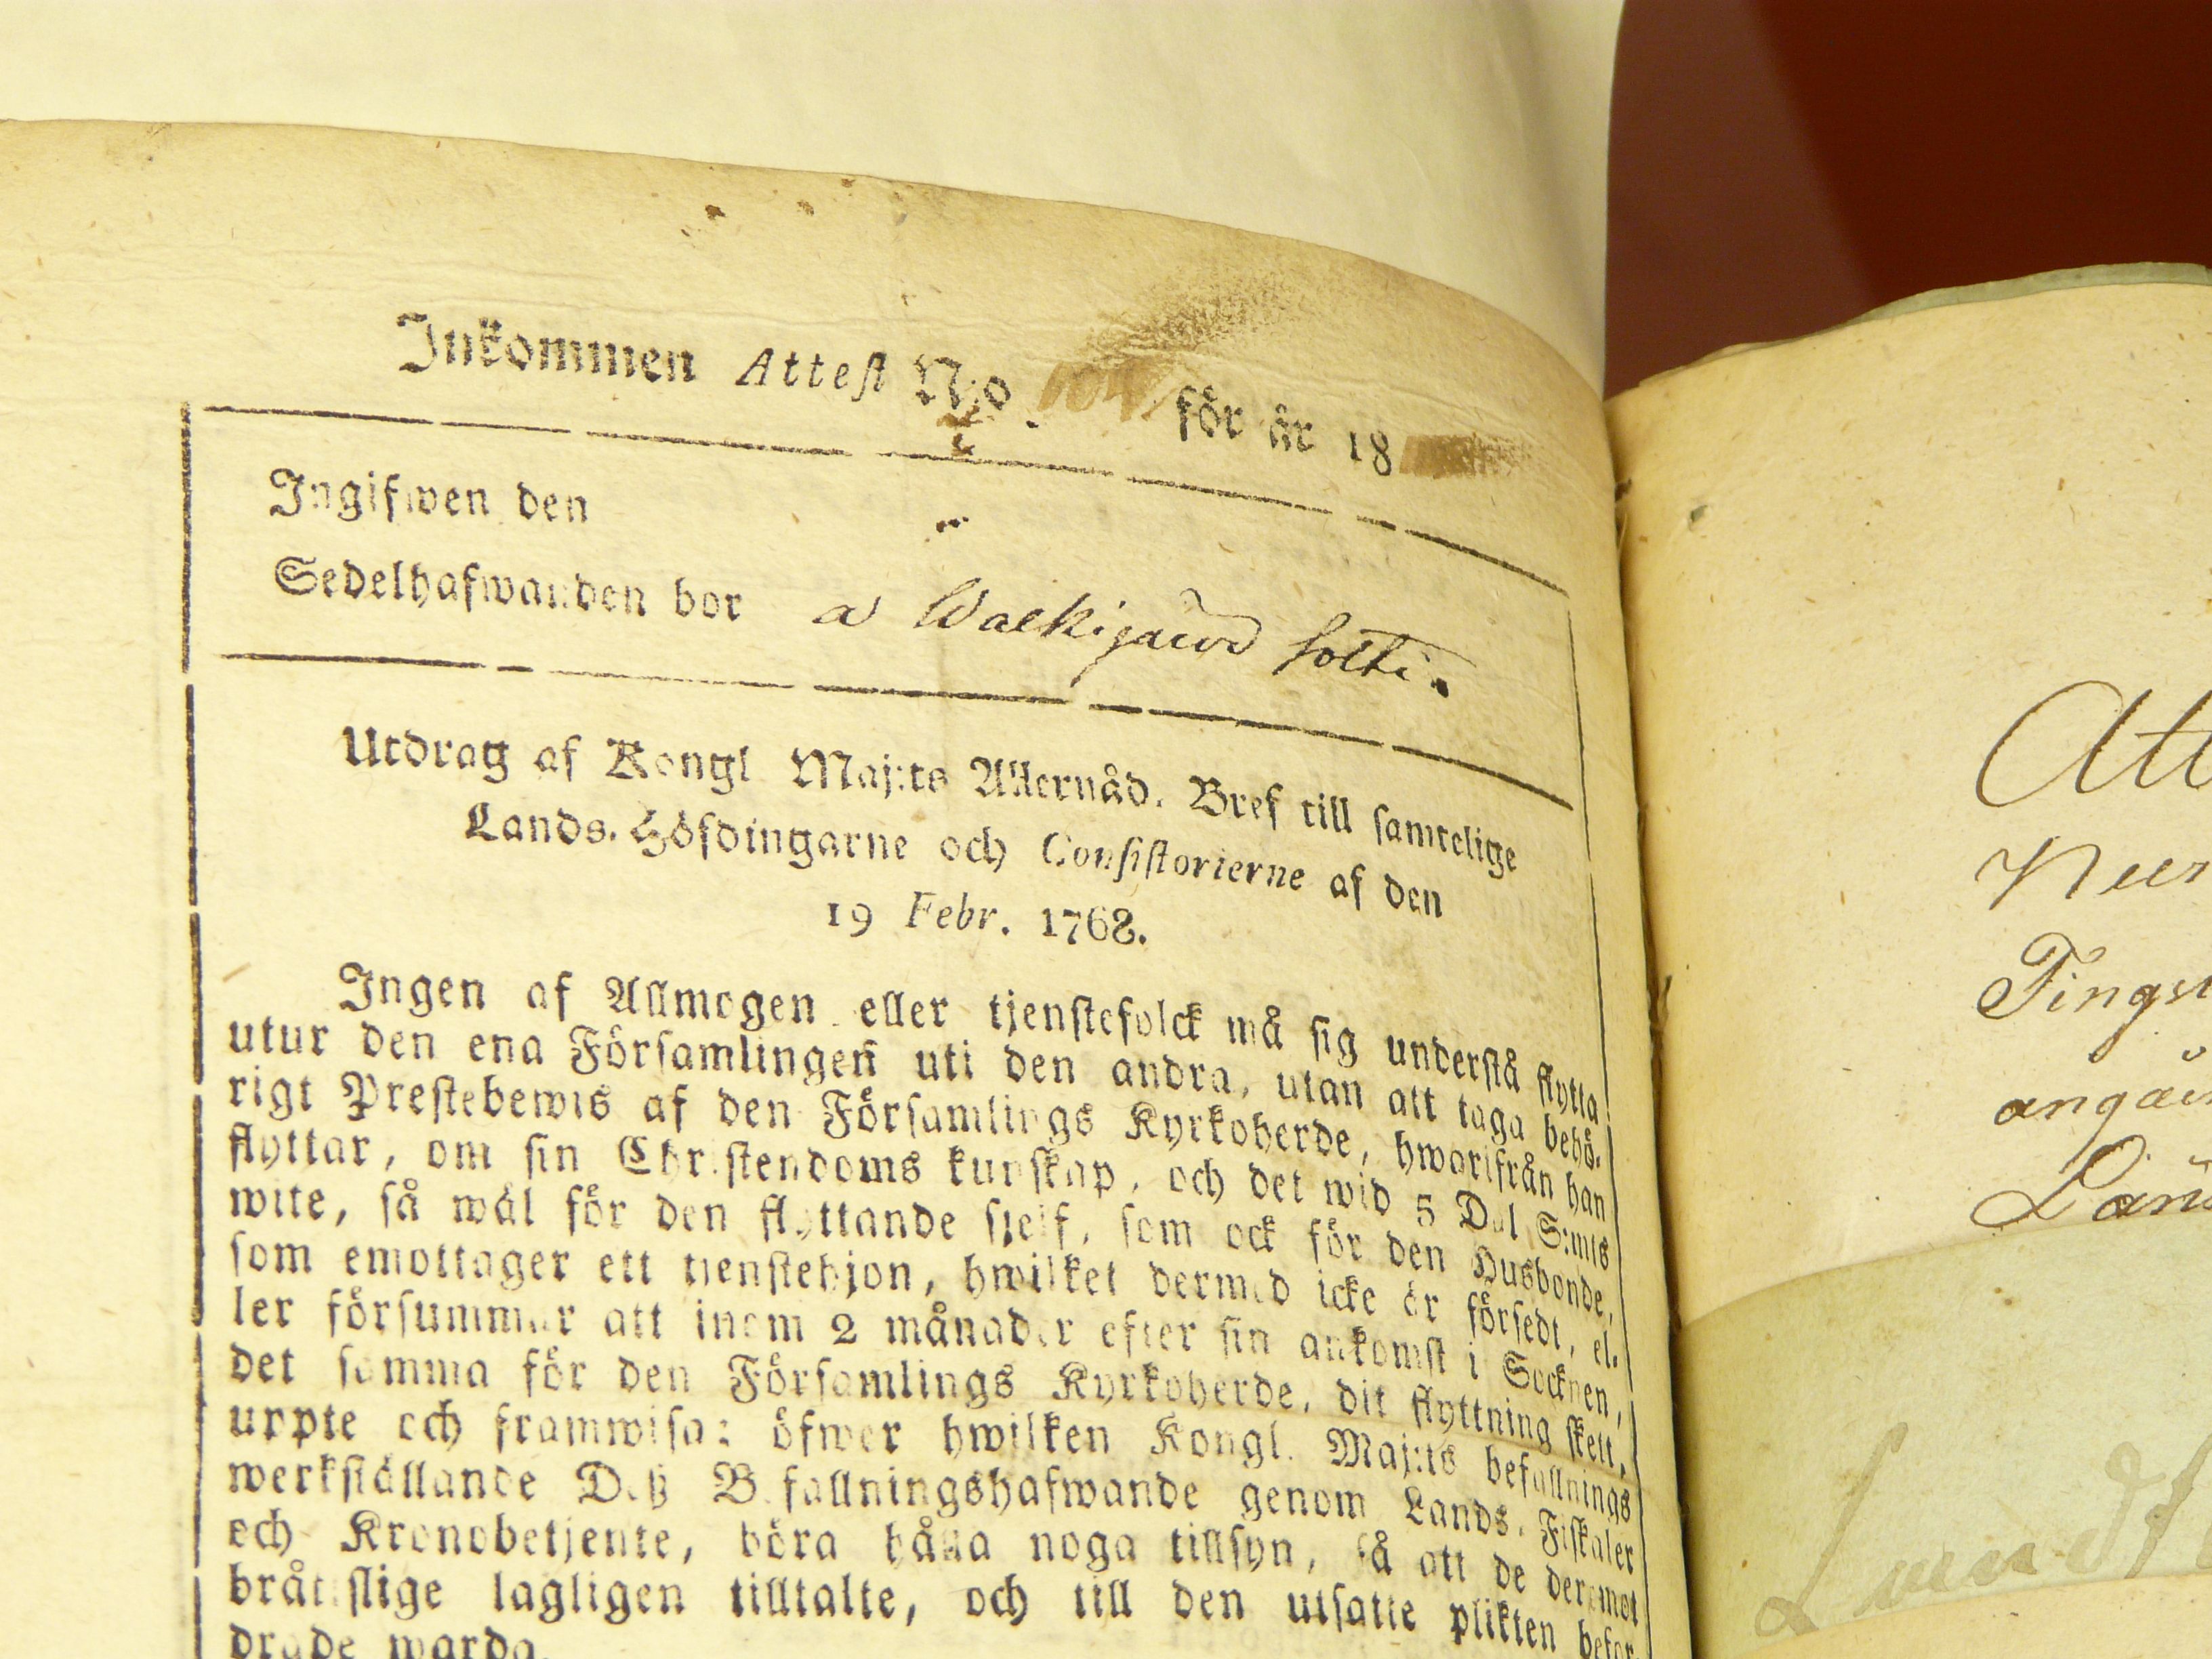 Inkommen Attest N:o. 104 för år 18
Ingifwen den
Sedelhafwanden bor a
Utdrag af Kongl Maj:ts Allernåd. Bref till samtelige
Lands. Höfdingarne och Consistorierne af den
19 Febr. 1768.
Ingen af Allmogen eller tjenstefolck må sig understå flytta
utur den ena Församlingen uti den andra, utan att taga behö-
rigt Prestebewis af den Församlings Kyrkoherde, hwarifrån han
flyttar, om sin Christendoms kunskap, och det wid 5 Dal S:mts
wite, så wäl för den flyttande sjelf, som ock för den Husbonde,
som emottager ett tjenstehjon, hwilket dermed icke är försedt, el-
ler försummar att inom 2 månader efter sin ankomst i Socknen,
det samma för den Församlings Kyrkoherde, dit flyttning skett,
uppte och framwisa: öfwer hwilken Kongl. Maj:ts befallnings
werkställande Deß Befallningshafwande genom Lands. Fiskaler
och Kronobetjente, böra hålla noga tillsyn, så att de deremot
bråtslige lagligen tilltalte, och till den utsatte plikten befor-
drade warda.
Att
Fingst
angåe